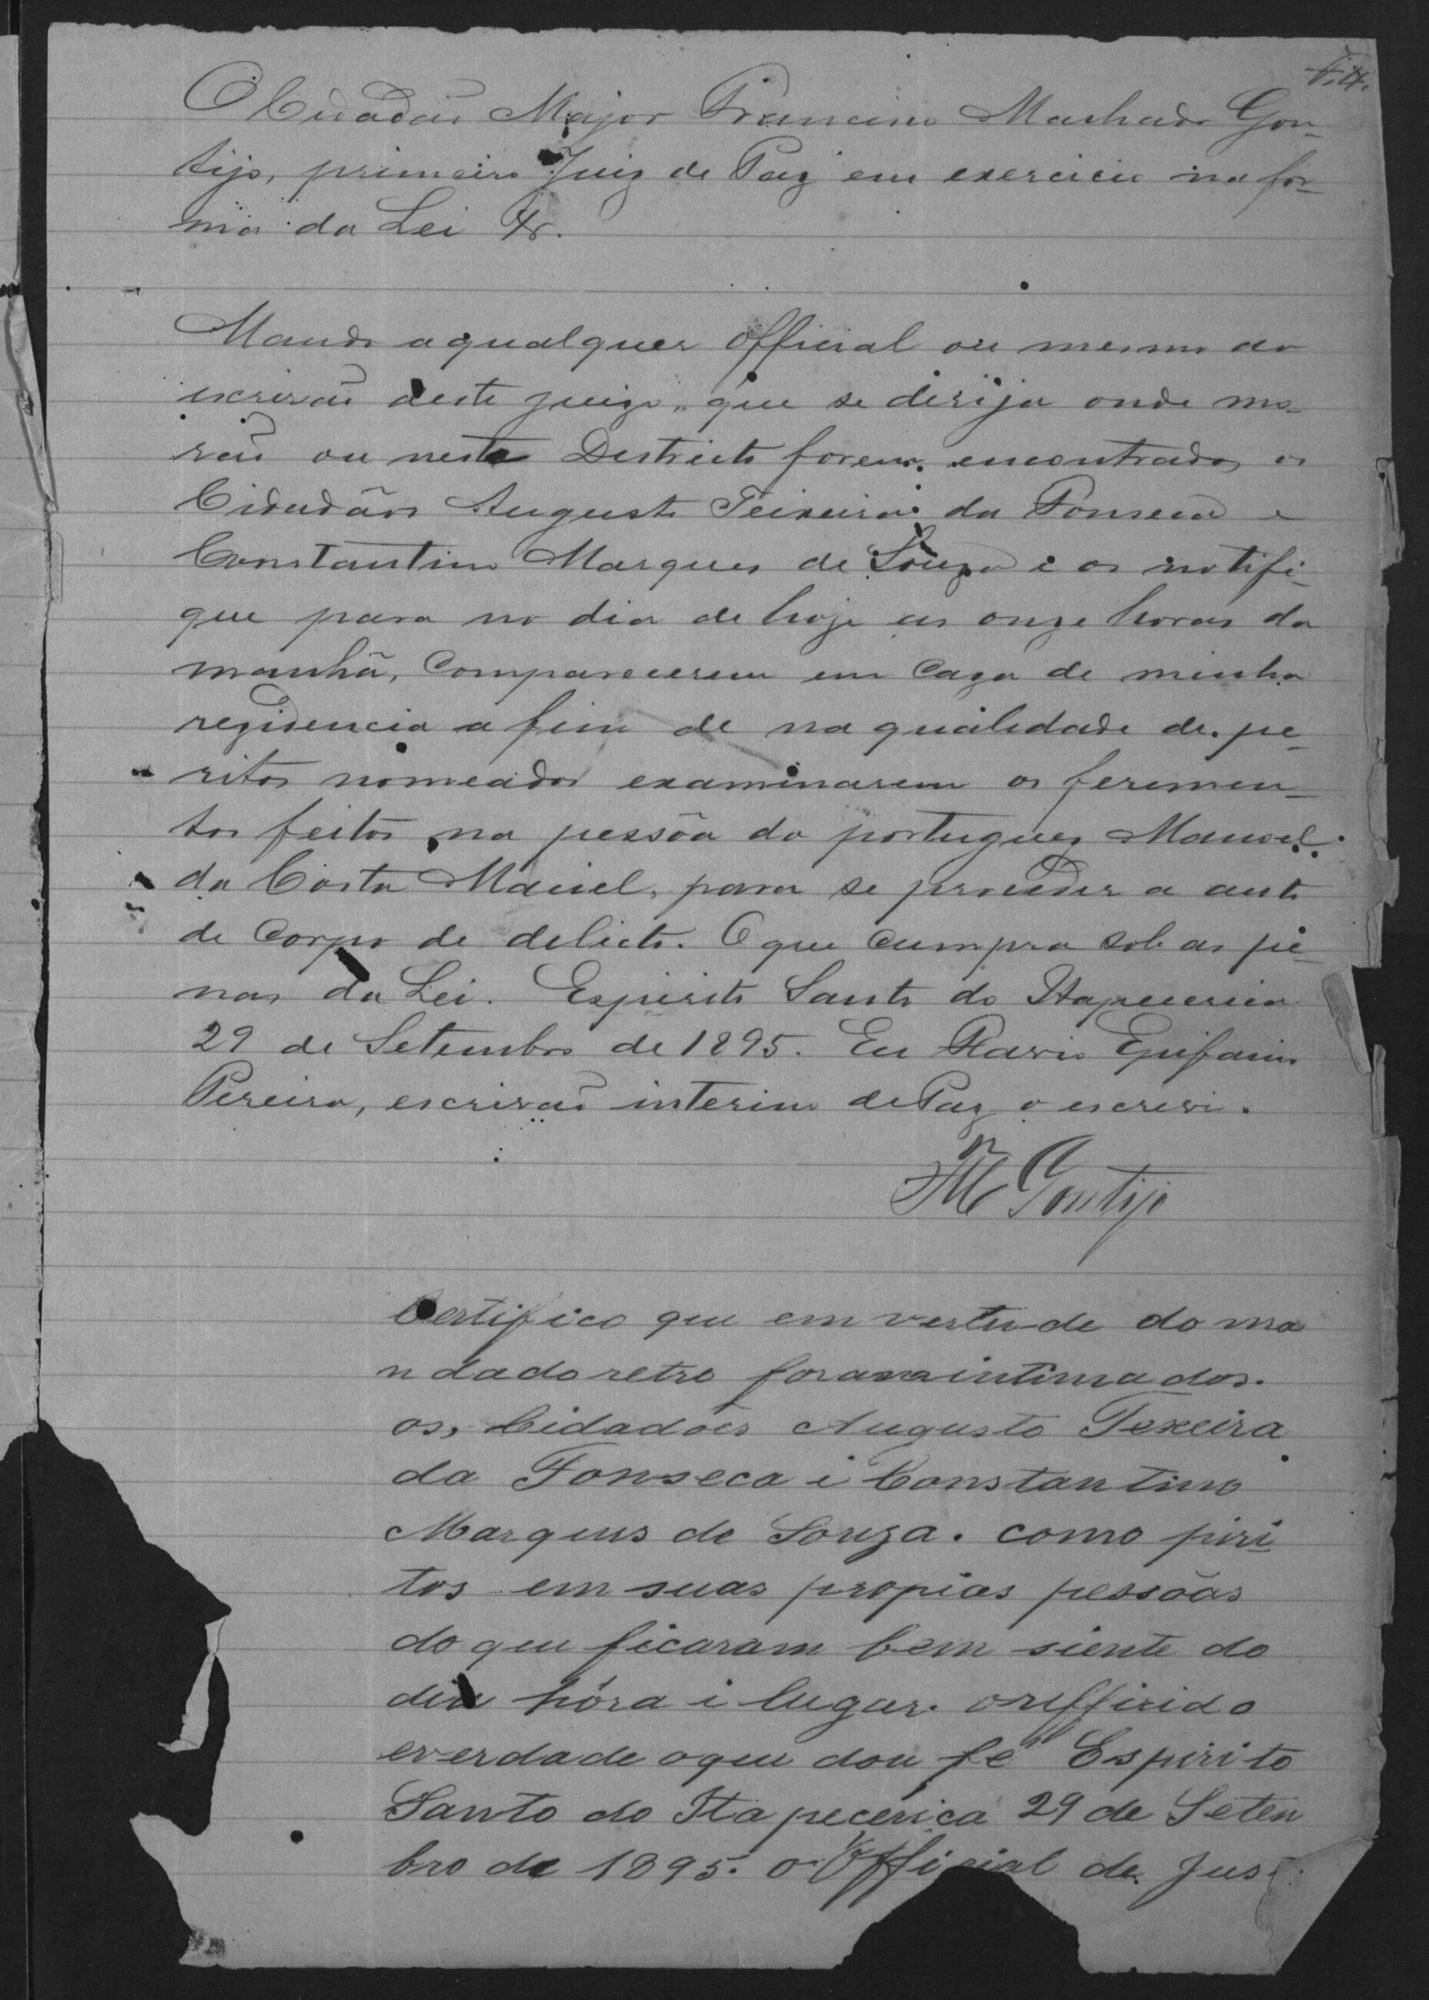 Fl 4.
O Cidadão Major Francisco Machado Gon-
tijo, primeiro Juiz de Paz em exercicio na for-
ma da Lei &.
Mando a qualquer official ou mesmo do
escrivão deste juizo, que se dirija onde mo-
rão ou neste Districto forem encontrados os
Cidadãos Augusto Teixeira da Fonseca e
Constantino Marques de Souza e os notifi-
que para no dia de hoje as onze horas da
manhã, comparecerem em caza de minha
rezidencia a fim de na qualidade de pe-
ritos nomeados examinarem os ferimen-
tos feitos na pessôa do portuguez Manoel
da Costa Maciel, para se proceder a auto
de corpo de delicto. O que cumpra sob as pe-
nas da Lei. Espirito Santo do Itapecerica
29 de Setembro de 1895. Eu Flavio Epifanio
Pereira, escrivão interino de Paz o escrevi.
FM Gontijo
Certifico que em vertude do ma
ndado retro foram intimados.
os, Cidadões Augusto Texeira
da Fonseca i Constantino
Marques de Souza. como piri-
tos em suas propias pessôas
do qeu ficaram bem siente do
dia hóra i lugar. oreffirido
everdade oqeu dou fé Espirito
Santo do Itapecerica 29 de Seten
bro de 1895. o Official de Jus